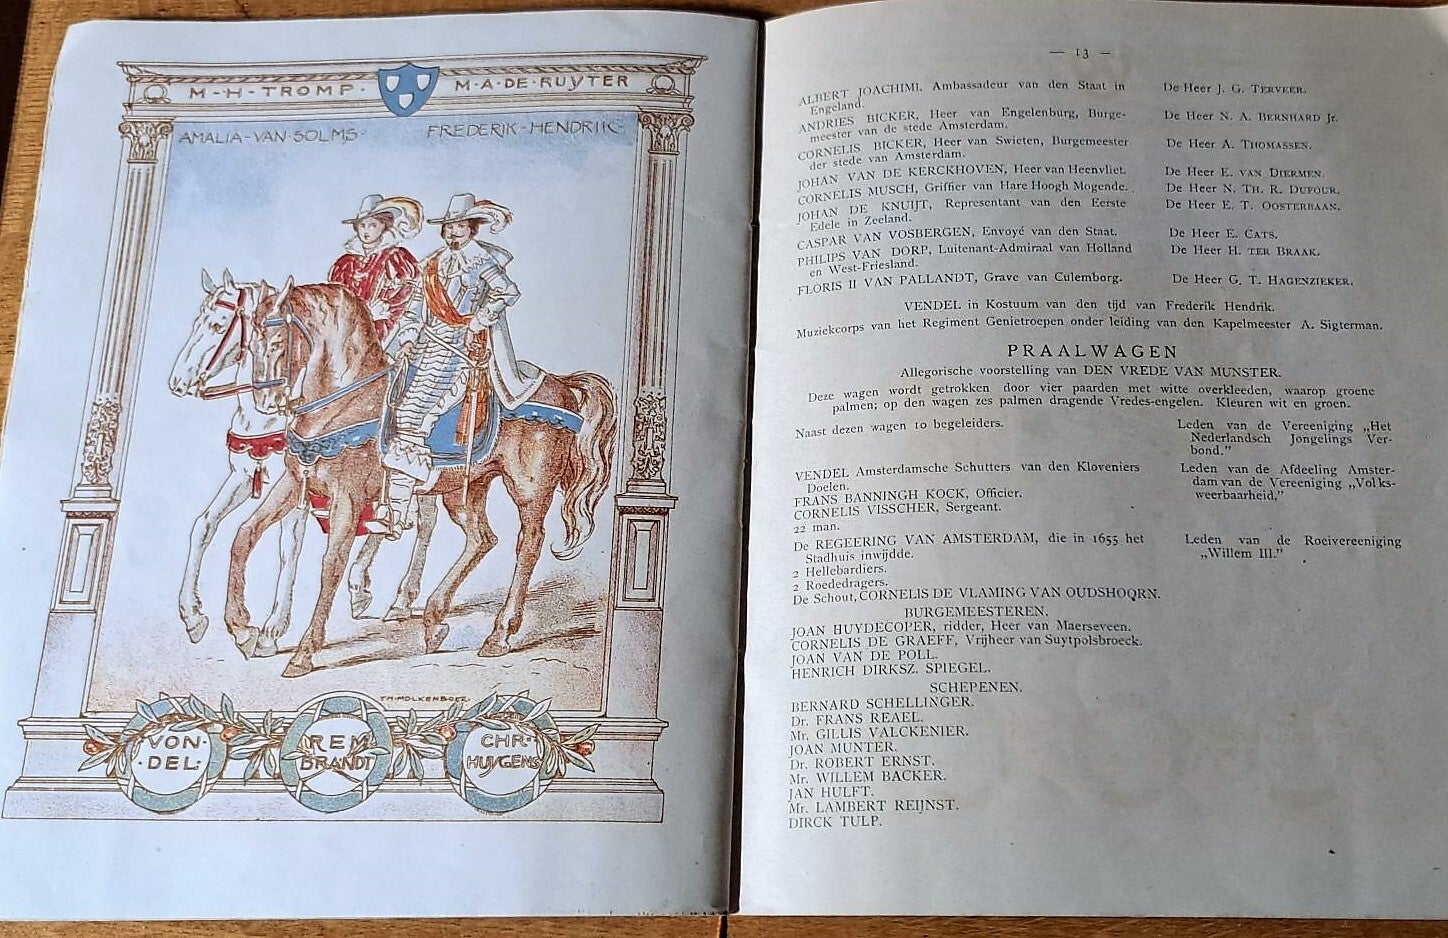 M·H·TROMP·
M·A·DE·RUYTER
AMALIA·VAN·SOLMS·
FREDERIK·HENDRIK·
TH·MOLKENBOER
VON·
·DEL·
REM
BRANDT
CHR·
HUYGENS
— 13 —
ALBERT JOACHIMI. Ambassadeur van den Staat in De Heer J. G. TERVEER.
Engeland.
ANDRIES BICKER, Heer van Engelenburg, Burge- De Heer N. A. BERNHARD Jr.
meester van de stede Amsterdam.
CORNELIS BICKER, Heer van Swieten, Burgemeester De Heer A. THOMASSEN.
der stede van Amsterdam.
JOHAN VAN DE KERCKHOVEN, Heer van Heenvliet. De Heer E. VAN DIERMEN.
CORNELIS MUSCH, Griffier van Hare Hoogh Mogende. De Heer N. TH. R. DUFOUR.
JOHAN DE KNUIJT, Representant van den Eerste De Heer E. T. OOSTERBAAN.
Edele in Zeeland.
CASPAR VAN VOSBERGEN, Envoyé van den Staat. De Heer E. CATS.
PHILIPS VAN DORP, Luitenant-Admiraal van Holland De Heer H. TER BRAAK.
en West-Friesland.
FLORIS II VAN PALLANDT, Grave van Culemborg. De Heer G. T. HAGENZIEKER.
VENDEL in Kostuum van den tijd van Frederik Hendrik.
Muziekcorps van het Regiment Genietroepen onder leiding van den Kapelmeester A. Sigterman.
PRAALWAGEN
Allegorische voorstelling van DEN VREDE VAN MUNSTER.
Deze wagen wordt getrokken door vier paarden met witte overkleeden, waarop groene
palmen; op den wagen zes palmen dragende Vredes-engelen. Kleuren wit en groen.
Naast dezen wagen 10 begeleiders. Leden van de Vereeniging „Het
Nederlandsch Jongelings Ver-
bond."
VENDEL Amsterdamsche Schutters van den Kloveniers Leden van de Afdeeling Amster-
Doelen. dam van de Vereeniging „Volks-
FRANS BANNINGH KOCK, Officier. weerbaarheid,"
CORNELIS VISSCHER, Sergeant.
22 man.
De REGEERING VAN AMSTERDAM, die in 1655 het Leden van de Roeivereeniging
Stadhuis inwijdde. „Willem III."
2 Hellebardiers.
2 Roededragers.
De Schout, CORNELIS DE VLAMING VAN OUDSHOORN.
BURGEMEESTEREN.
JOAN HUYDECOPER, ridder, Heer van Maerseveen.
CORNELIS DE GRAEFF, Vrijheer van Suytpolsbroeck.
JOAN VAN DE POLL.
HENRICH DIRKSZ. SPIEGEL.
SCHEPENEN.
BERNARD SCHELLINGER.
Dr. FRANS REAEL.
Mr. GILLIS VALCKENIER.
JOAN MUNTER.
Dr. ROBERT ERNST.
Mr. WILLEM BACKER.
JAN HULFT.
Mr. LAMBERT REIJNST.
DIRCK TULP.